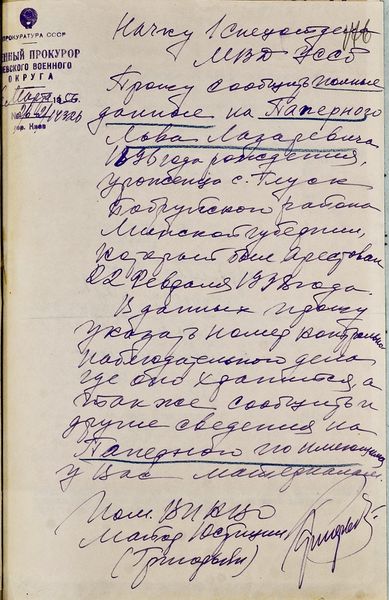 ПРОКУРАТУРА СССР
ВОЕННЫЙ ПРОКУРОР
КИЕВСКОГО ВОЕННОГО
ОКРУГА
Марта 1956.
гор. Киев
Начку 1 Спецотдела
МВД УССР
Прошу сообщить полные
данные на Паперного
Льва Лазаревича
1896 года рождения,
уроженца с. Глуск
Бобруйского района
Минской губернии,
который был арестован
22 февраля 1938 года.
В данных прошу
указать номер контрольно
наблюдательного дела
где оно хранится, а
также сообщить и
другие сведения на
Паперного по имеющимся
у Вас материалам.
Пом. ВП КВО
Майор Юстиции
(Григорьев)